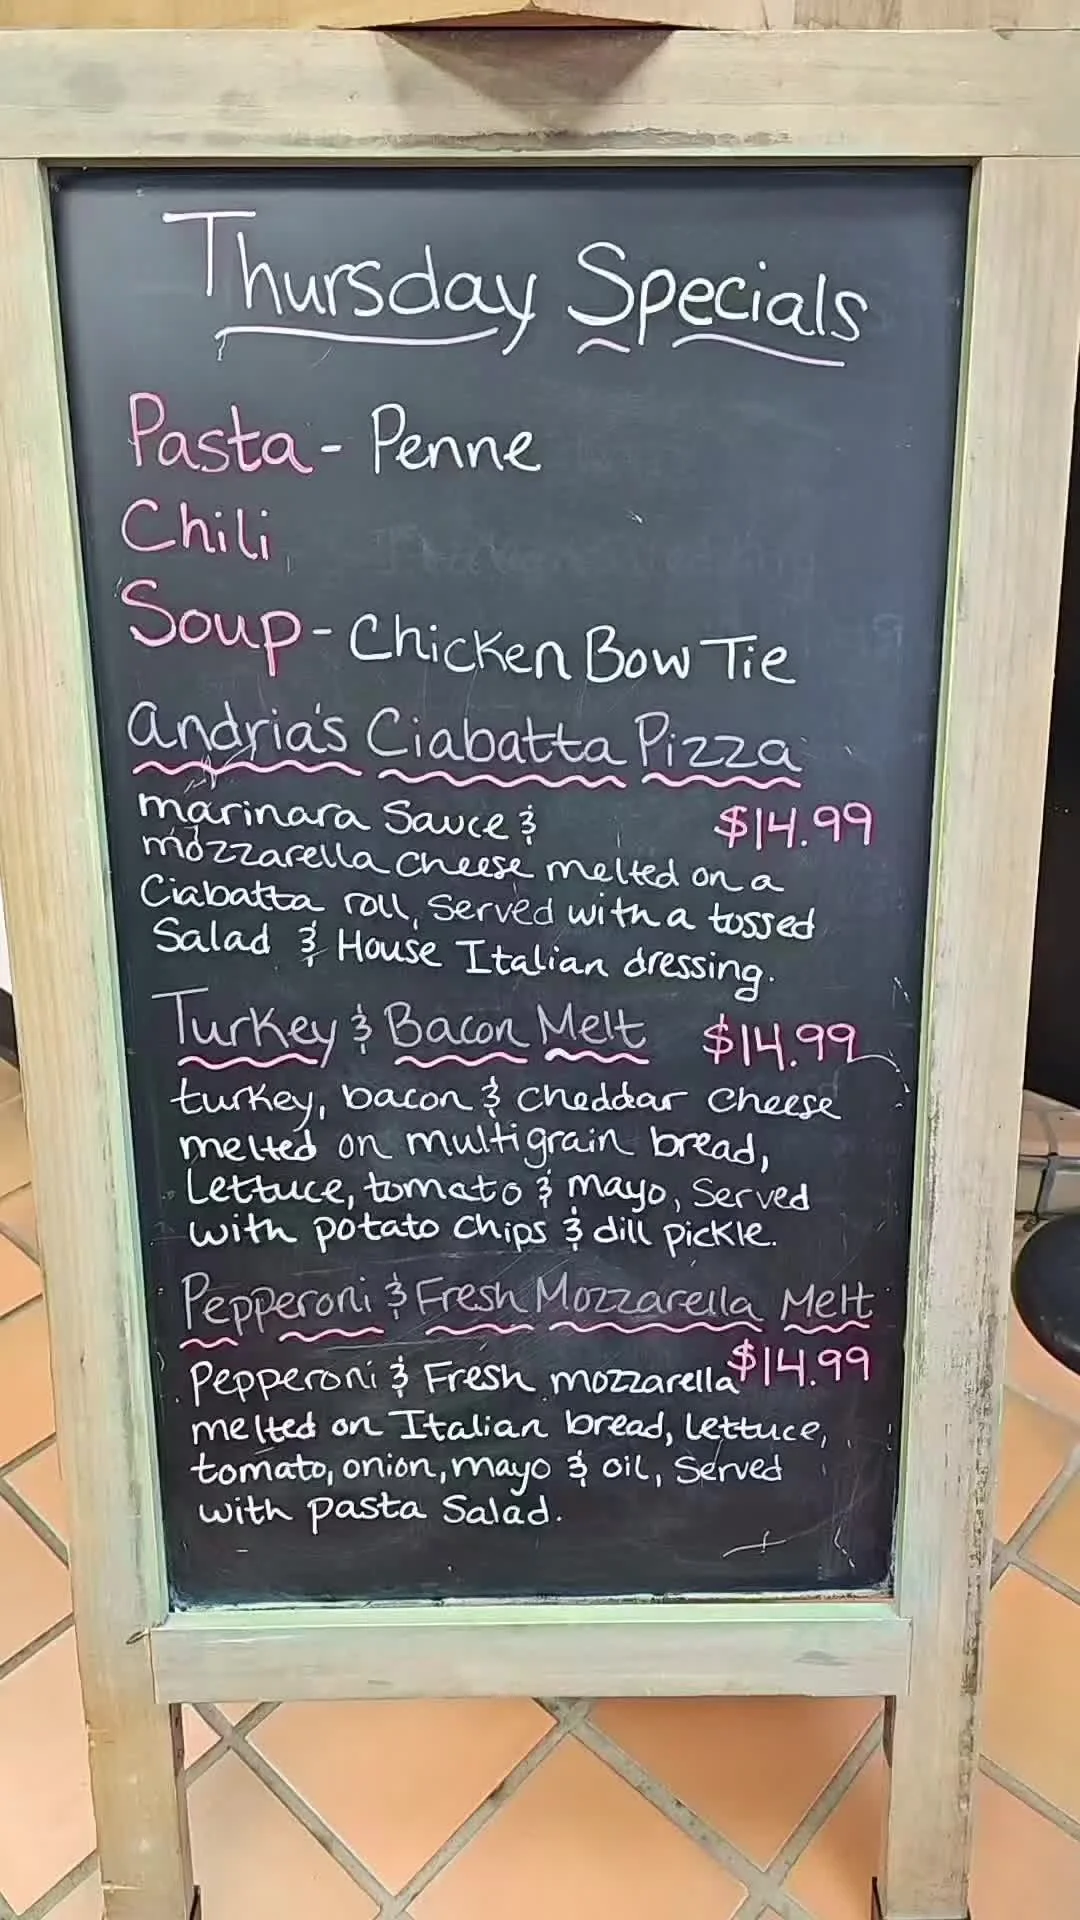 Thursday Specials
Pasta - Penne
Chili
Soup - Chicken Bow Tie
Andria's Ciabatta Pizza
marinara Sauce & $14.99
mozzarella cheese melted on a
Ciabatta roll, Served with a tossed
Salad & House Italian dressing.
Turkey & Bacon Melt $14.99
turkey, bacon & cheddar cheese
melted on multigrain bread,
Lettuce, tomato & mayo, Served
with potato chips & dill pickle.
Pepperoni & Fresh Mozzarella Melt
Pepperoni & Fresh mozzarella $14.99
melted on Italian bread, lettuce,
tomato, onion, mayo & oil, Served
with pasta Salad.